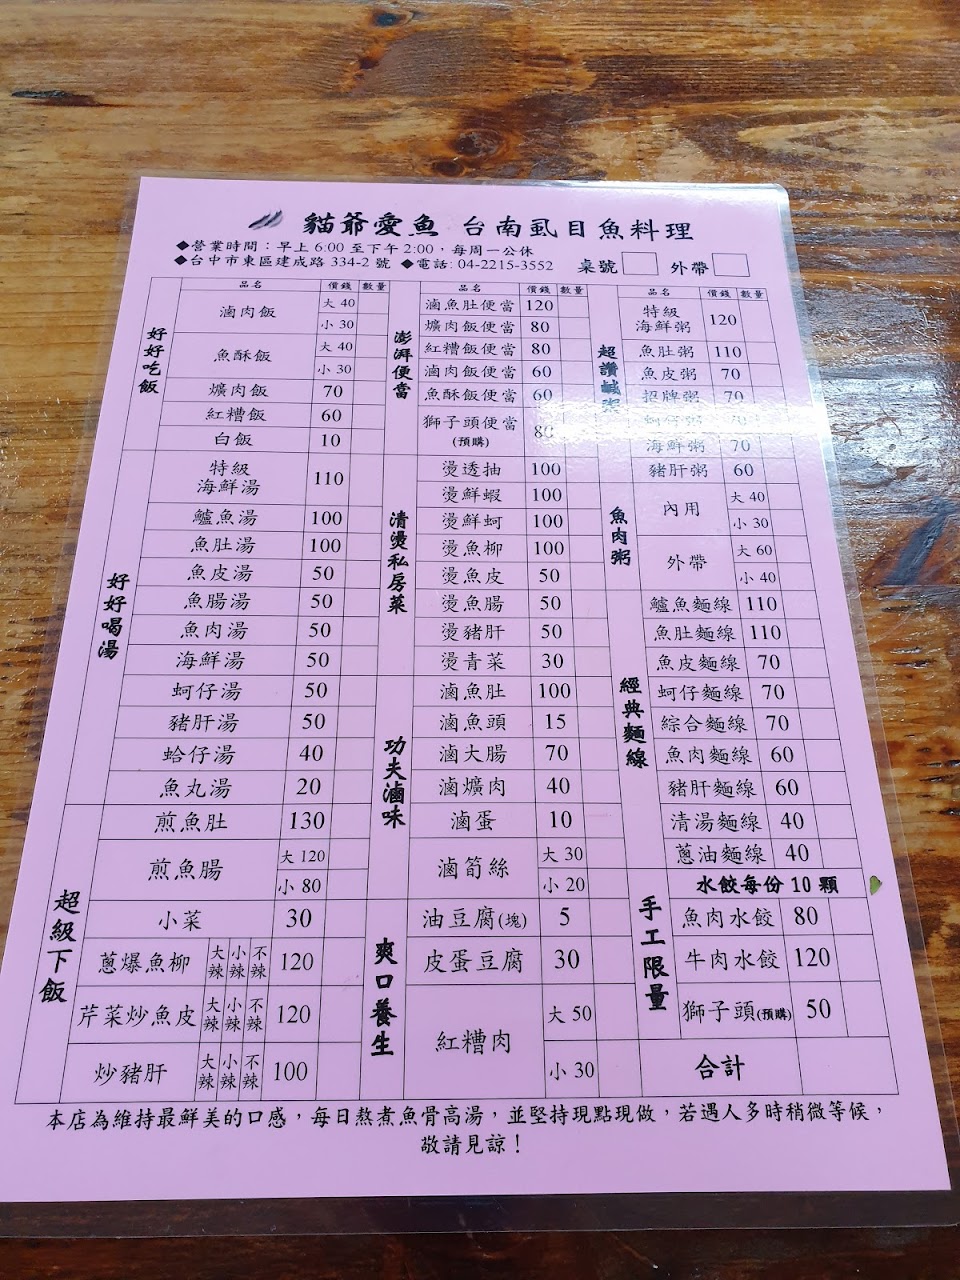 貓爺愛魚 台南虱目魚料理
◆營業時間：早上 6:00 至下午 2:00，每周一公休
◆台中市東區建成路 334-2 號 ◆電話: 04-2215-3552
桌號 外帶
好好吃飯
品名 價錢 數量
滷肉飯 大 40
小 30
魚酥飯 大 40
小 30
爌肉飯 70
紅糟飯 60
白飯 10
好好喝湯
特級海鮮湯 110
鱸魚湯 100
魚肚湯 100
魚皮湯 50
魚腸湯 50
魚肉湯 50
海鮮湯 50
蚵仔湯 50
豬肝湯 50
蛤仔湯 40
魚丸湯 20
超級下飯
煎魚肚 130
煎魚腸 大 120
小 80
小菜 30
蔥爆魚柳 大辣 小辣 不辣 120
芹菜炒魚皮 大辣 小辣 不辣 120
炒豬肝 大辣 小辣 不辣 100
澎湃便當
品名 價錢 數量
滷魚肚便當 120
爌肉飯便當 80
紅糟飯便當 80
滷肉飯便當 60
魚酥飯便當 60
獅子頭便當(預購) 80
清燙私房菜
燙透抽 100
燙鮮蝦 100
燙鮮蚵 100
燙魚柳 100
燙魚皮 50
燙魚腸 50
燙豬肝 50
燙青菜 30
功夫滷味
滷魚肚 100
滷魚頭 15
滷大腸 70
滷爌肉 40
滷蛋 10
滷筍絲 大 30
小 20
爽口養生
油豆腐(塊) 5
皮蛋豆腐 30
紅糟肉 大 50
小 30
超讚鹹粥
品名 價錢 數量
特級海鮮粥 120
魚肚粥 110
魚皮粥 70
招牌粥 70
蚵仔粥 70
海鮮粥 70
豬肝粥 60
魚肉粥
內用 大 40
小 30
外帶 大 60
小 40
經典麵線
鱸魚麵線 110
魚肚麵線 110
魚皮麵線 70
蚵仔麵線 70
綜合麵線 70
魚肉麵線 60
豬肝麵線 60
清湯麵線 40
蔥油麵線 40
手工限量
水餃每份 10 顆
魚肉水餃 80
牛肉水餃 120
獅子頭(預購) 50
合計
本店為維持最鮮美的口感，每日熬煮魚骨高湯，並堅持現點現做，若遇人多時稍微等候，
敬請見諒！